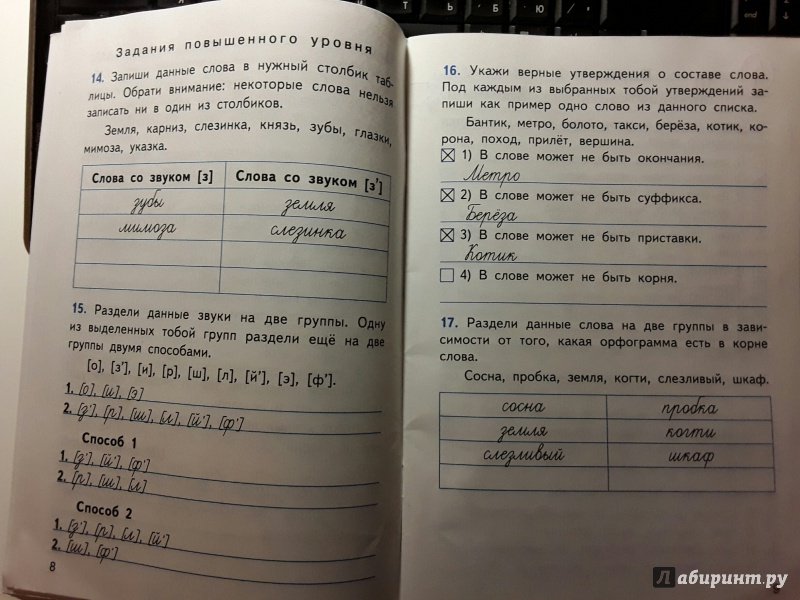 Задания повышенного уровня
14. Запиши данные слова в нужный столбик таб-
лицы. Обрати внимание: некоторые слова нельзя
записать ни в один из столбиков.
Земля, карниз, слезинка, князь, зубы, глазки,
мимоза, указка.
Слова со звуком [з] Слова со звуком [з']
зубы земля
мимоза слезинка
15. Раздели данные звуки на две группы. Одну
из выделенных тобой групп раздели ещё на две
группы двумя способами.
[о], [з'], [и], [р], [ш], [л], [й'], [э], [ф'].
1. [о], [и], [э]
2. [з'], [р], [ш], [л], [й'], [ф']
Способ 1
1. [з'], [й'], [ф']
2. [р], [ш], [л]
Способ 2
1. [з'], [р], [л], [й']
2. [ш], [ф']
8
16. Укажи верные утверждения о составе слова.
Под каждым из выбранных тобой утверждений за-
пиши как пример одно слово из данного списка.
Бантик, метро, болото, такси, берёза, котик, ко-
рона, поход, прилёт, вершина.
1) В слове может не быть окончания.
Метро
2) В слове может не быть суффикса.
Берёза
3) В слове может не быть приставки.
Котик
4) В слове может не быть корня.
17. Раздели данные слова на две группы в зави-
симости от того, какая орфограмма есть в корне
слова.
Сосна, пробка, земля, когти, слезливый, шкаф.
сосна пробка
земля когти
слезливый шкаф
Лабиринт.ру